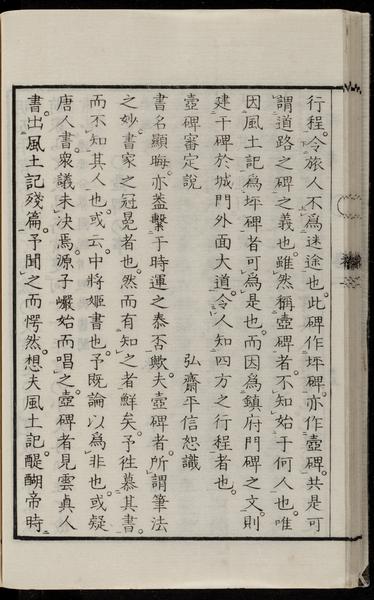 行程。令旅人不爲迷途也。此碑作坪碑。亦作壺碑。共是可
謂道路之碑之義也。雖然稱壺碑者。不知始于何人也。唯
因風土記爲坪碑者可爲是也。而因爲鎭府門碑之文。則
建于碑於城門外面大道。令人知四方之行程者也。
弘齋平信恕識
壺碑審定說
書名顯晦。亦蓋繫于時運之泰否歟。夫壺碑者。所謂筆法
之妙。書家之冠冕者也。然而有知之者鮮矣。予徃慕其書。
而不知其人也。或云。中將姬書也。予既論以爲非也。或疑
唐人書。衆議未决焉。源子巗始而唱之。壺碑者見雲眞人
書。出風土記殘篇。予聞之而愕然。想夫風土記。醍醐帝時